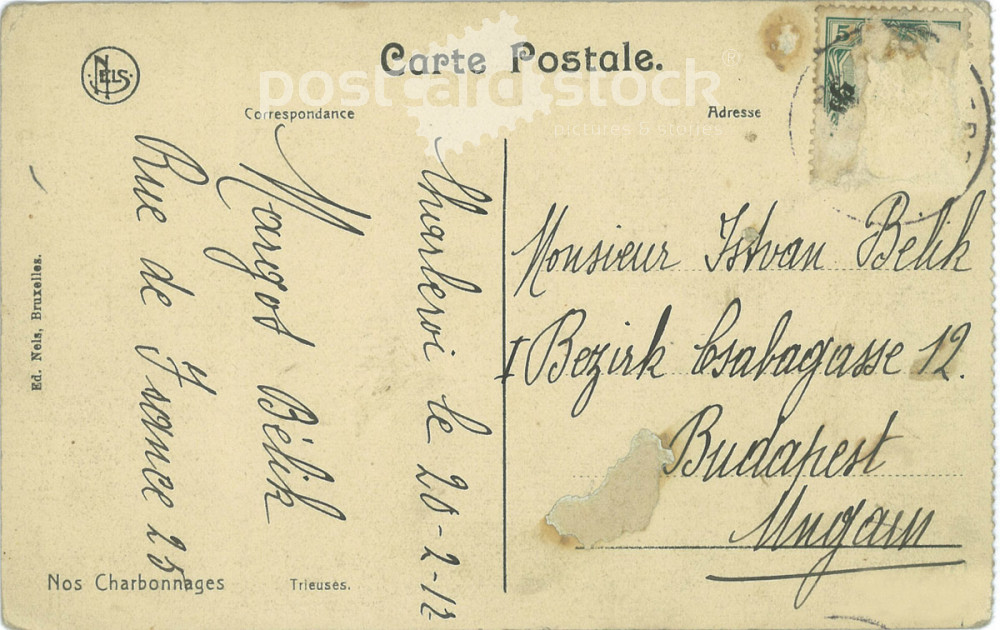 NELS
Carte Postale.
postcard stock
®
pictures & stories
Correspondance
Adresse
5
Charleroi le 20-2-12
Margot Bélik
Rue de France 25
Monsieur Istvan Bélik
I Bezirk Csabagasse 12.
Budapest
Ungarn
Ed. Nels, Bruxelles.
Nos Charbonnages
Trieuses.